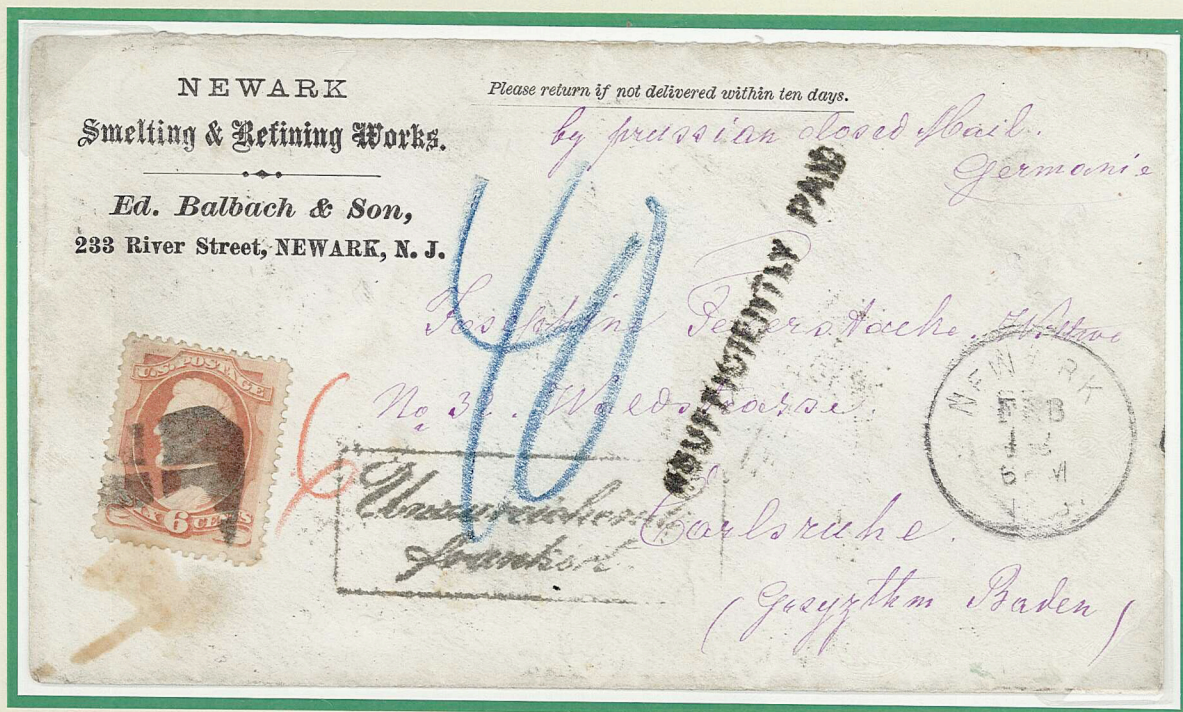 NEWARK
Smelting & Refining Works.
Ed. Balbach & Son,
233 River Street, NEWARK, N. J.
Please return if not delivered within ten days.
by prussian closed Mail.
Germanie
INSUFFICIENTLY PAID
40
Josephine
No 32. Waldstrasse.
Carlsruhe.
Baden
NEWARK
FEB
U.S. POSTAGE
SIX 6 CENTS
6
Unzureichend
frankirt